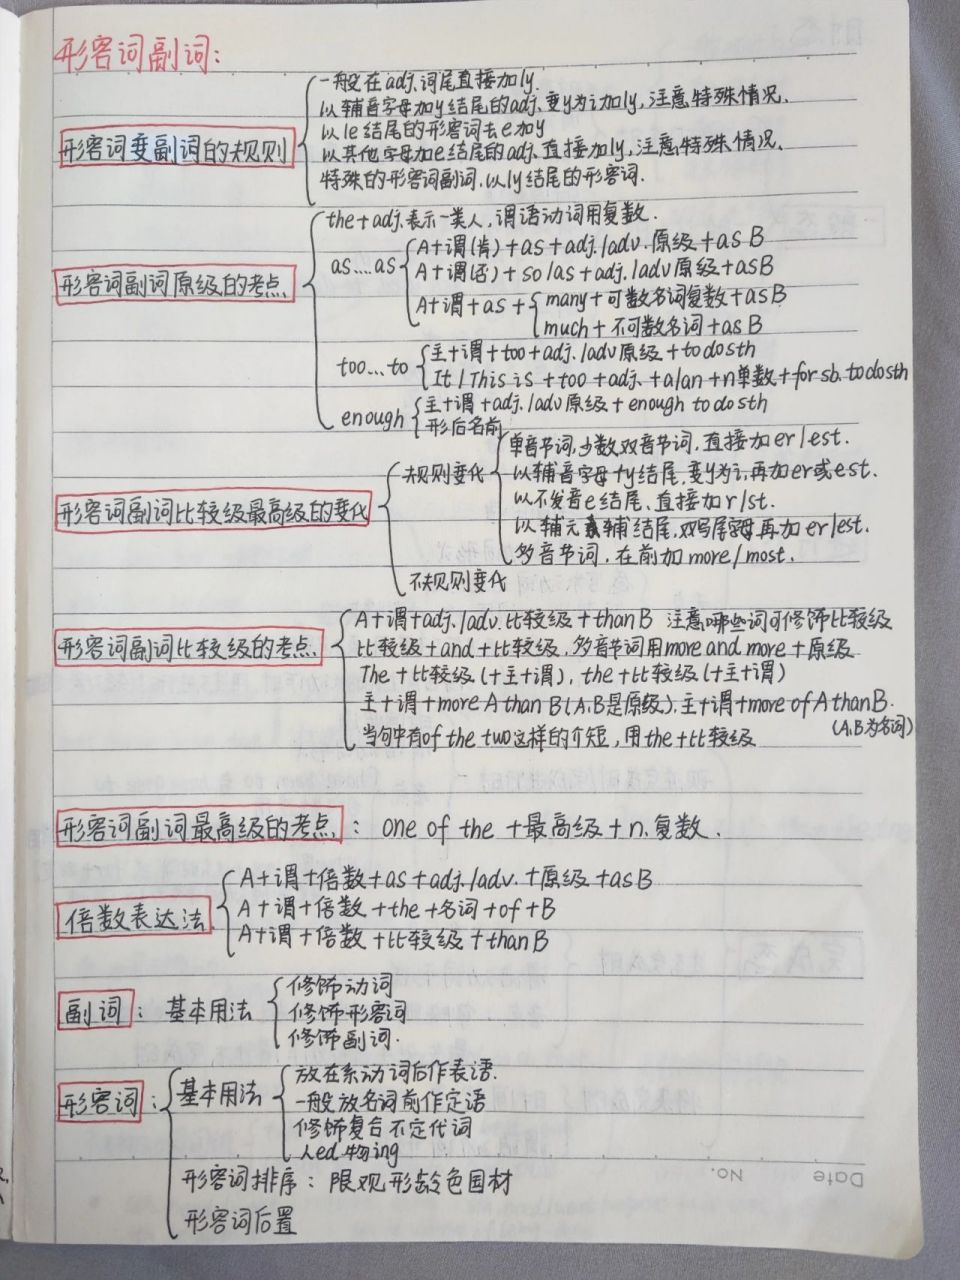 形容词副词:
形容词变副词的规则
一般在adj.词尾直接加ly.
以辅音字母加y结尾的adj.变y为i加ly,注意特殊情况.
以le结尾的形容词去e加y
以其他字母加e结尾的adj.直接加ly,注意特殊情况.
特殊的形容词副词,以ly结尾的形容词.
形容词副词原级的考点
the+adj.表示一类人,谓语动词用复数.
as....as
A+谓(肯)+as+adj./adv.原级+as B
A+谓(否)+so/as+adj./adv原级+asB
A+谓+as+
many+可数名词复数+asB
much+不可数名词+as B
too...to
主+谓+too+adj./adv原级+to do sth
It/This is +too+adj.+a/an+n单数+for sb.to do sth
enough
主+谓+adj./adv原级+enough to do sth
形后名前
形容词副词比较级最高级的变化
规则变化
单音节词,少数双音节词,直接加er/est.
以辅音字母+y结尾,变y为i,再加er或est.
以不发音e结尾,直接加r/st.
以辅元辅结尾,双写尾字母再加er/est.
多音节词,在前加more/most.
不规则变化
形容词副词比较级的考点
A+谓+adj./adv.比较级+than B 注意哪些词可修饰比较级
比较级+and+比较级,多音节词用more and more+原级
The+比较级(+主+谓),the+比较级(+主+谓)
主+谓+more A than B(A.B是原级),主+谓+more of A than B.
(A,B为名词)
当句中有of the two这样的介短,用the+比较级
形容词副词最高级的考点: one of the +最高级+n.复数.
倍数表达法
A+谓+倍数+as+adj./adv.+原级+as B
A+谓+倍数+the+名词+of+B
A+谓+倍数+比较级+than B
副词: 基本用法
修饰动词
修饰形容词
修饰副词.
形容词:
基本用法
放在系动词后作表语.
一般放名词前作定语
修饰复合不定代词
人ed.物ing
形容词排序: 限观形龄色国材
形容词后置
No.
Date